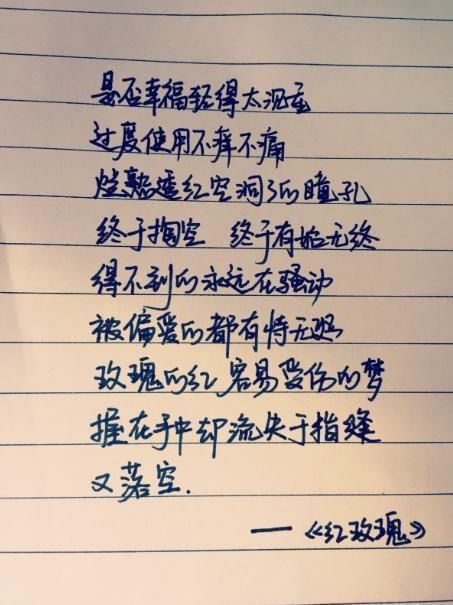 是否幸福轻得太沉重
过度使用不痒不痛
烂熟透红空洞了的瞳孔
终于掏空 终于有始无终
得不到的永远在骚动
被偏爱的都有恃无恐
玫瑰的红容易受伤的梦
握在手中却流失于指缝
又落空.
——《红玫瑰》